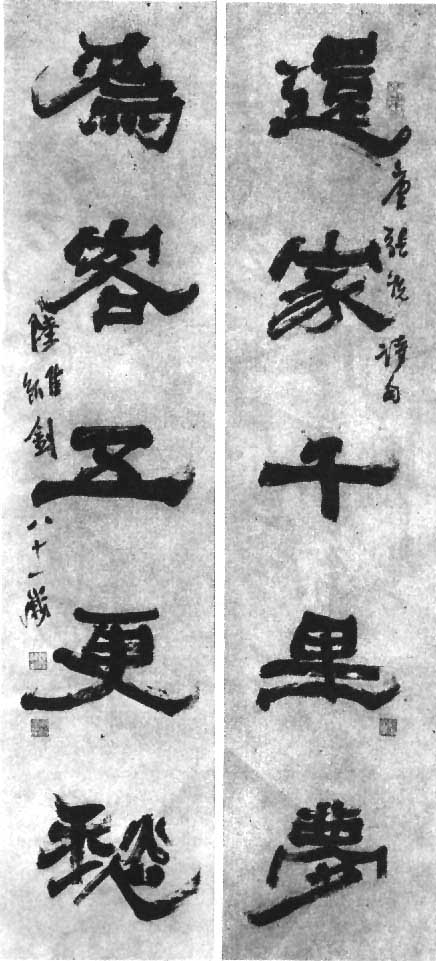 還家千里夢
唐張說詩句
為客五更愁
陸維釗八十一歲